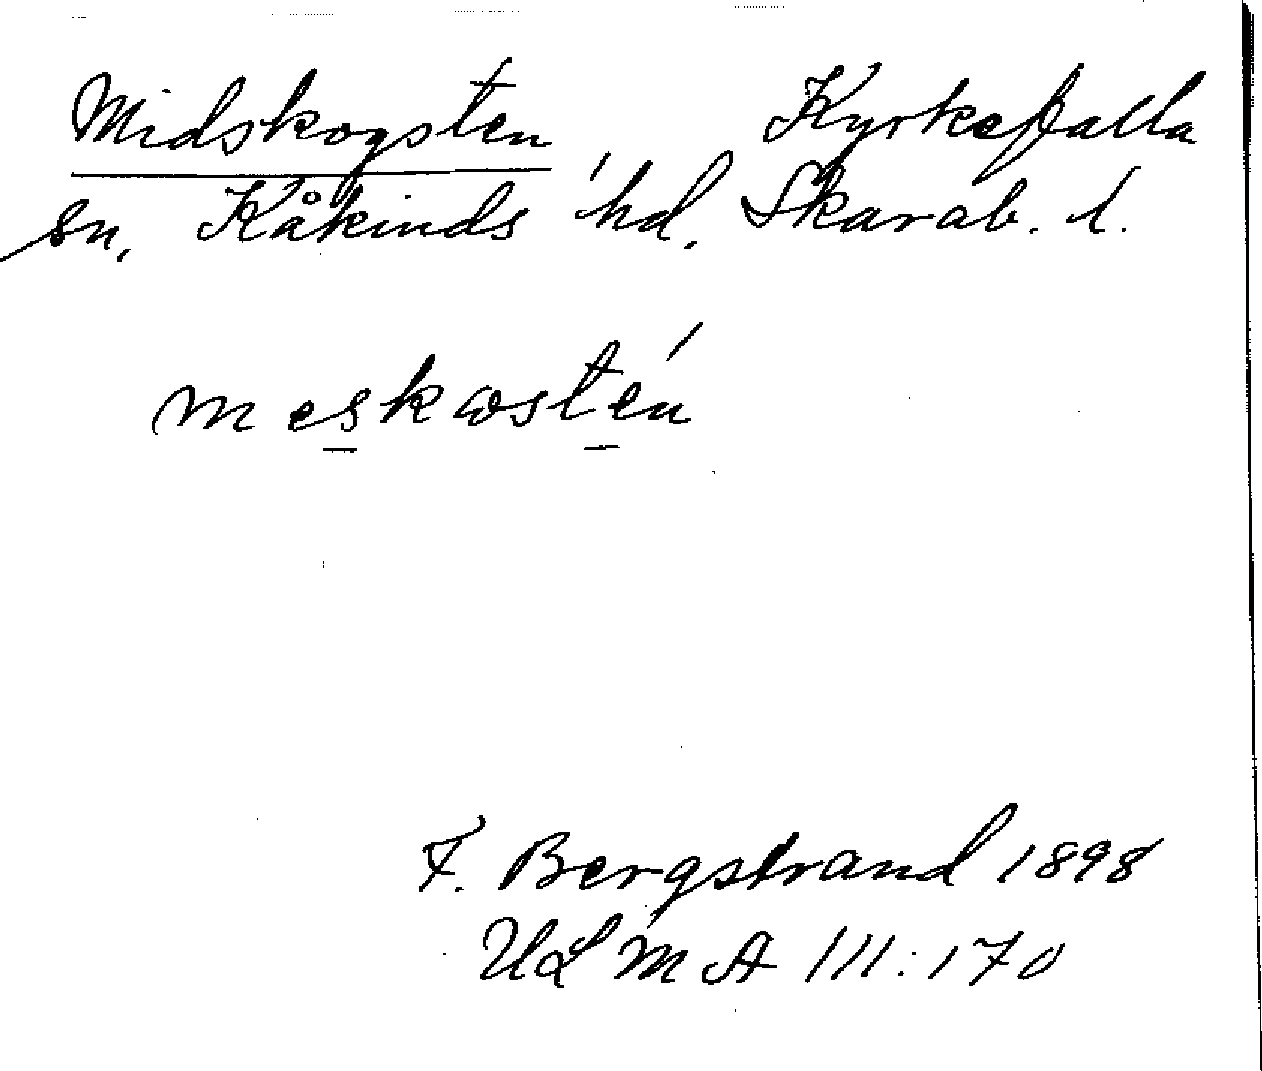 Midskogsten Kyrkefalla
sn, Kåkinds hd, Skarab. l.
meskωstén
F. Bergstrand 1898
ULMA 111:170